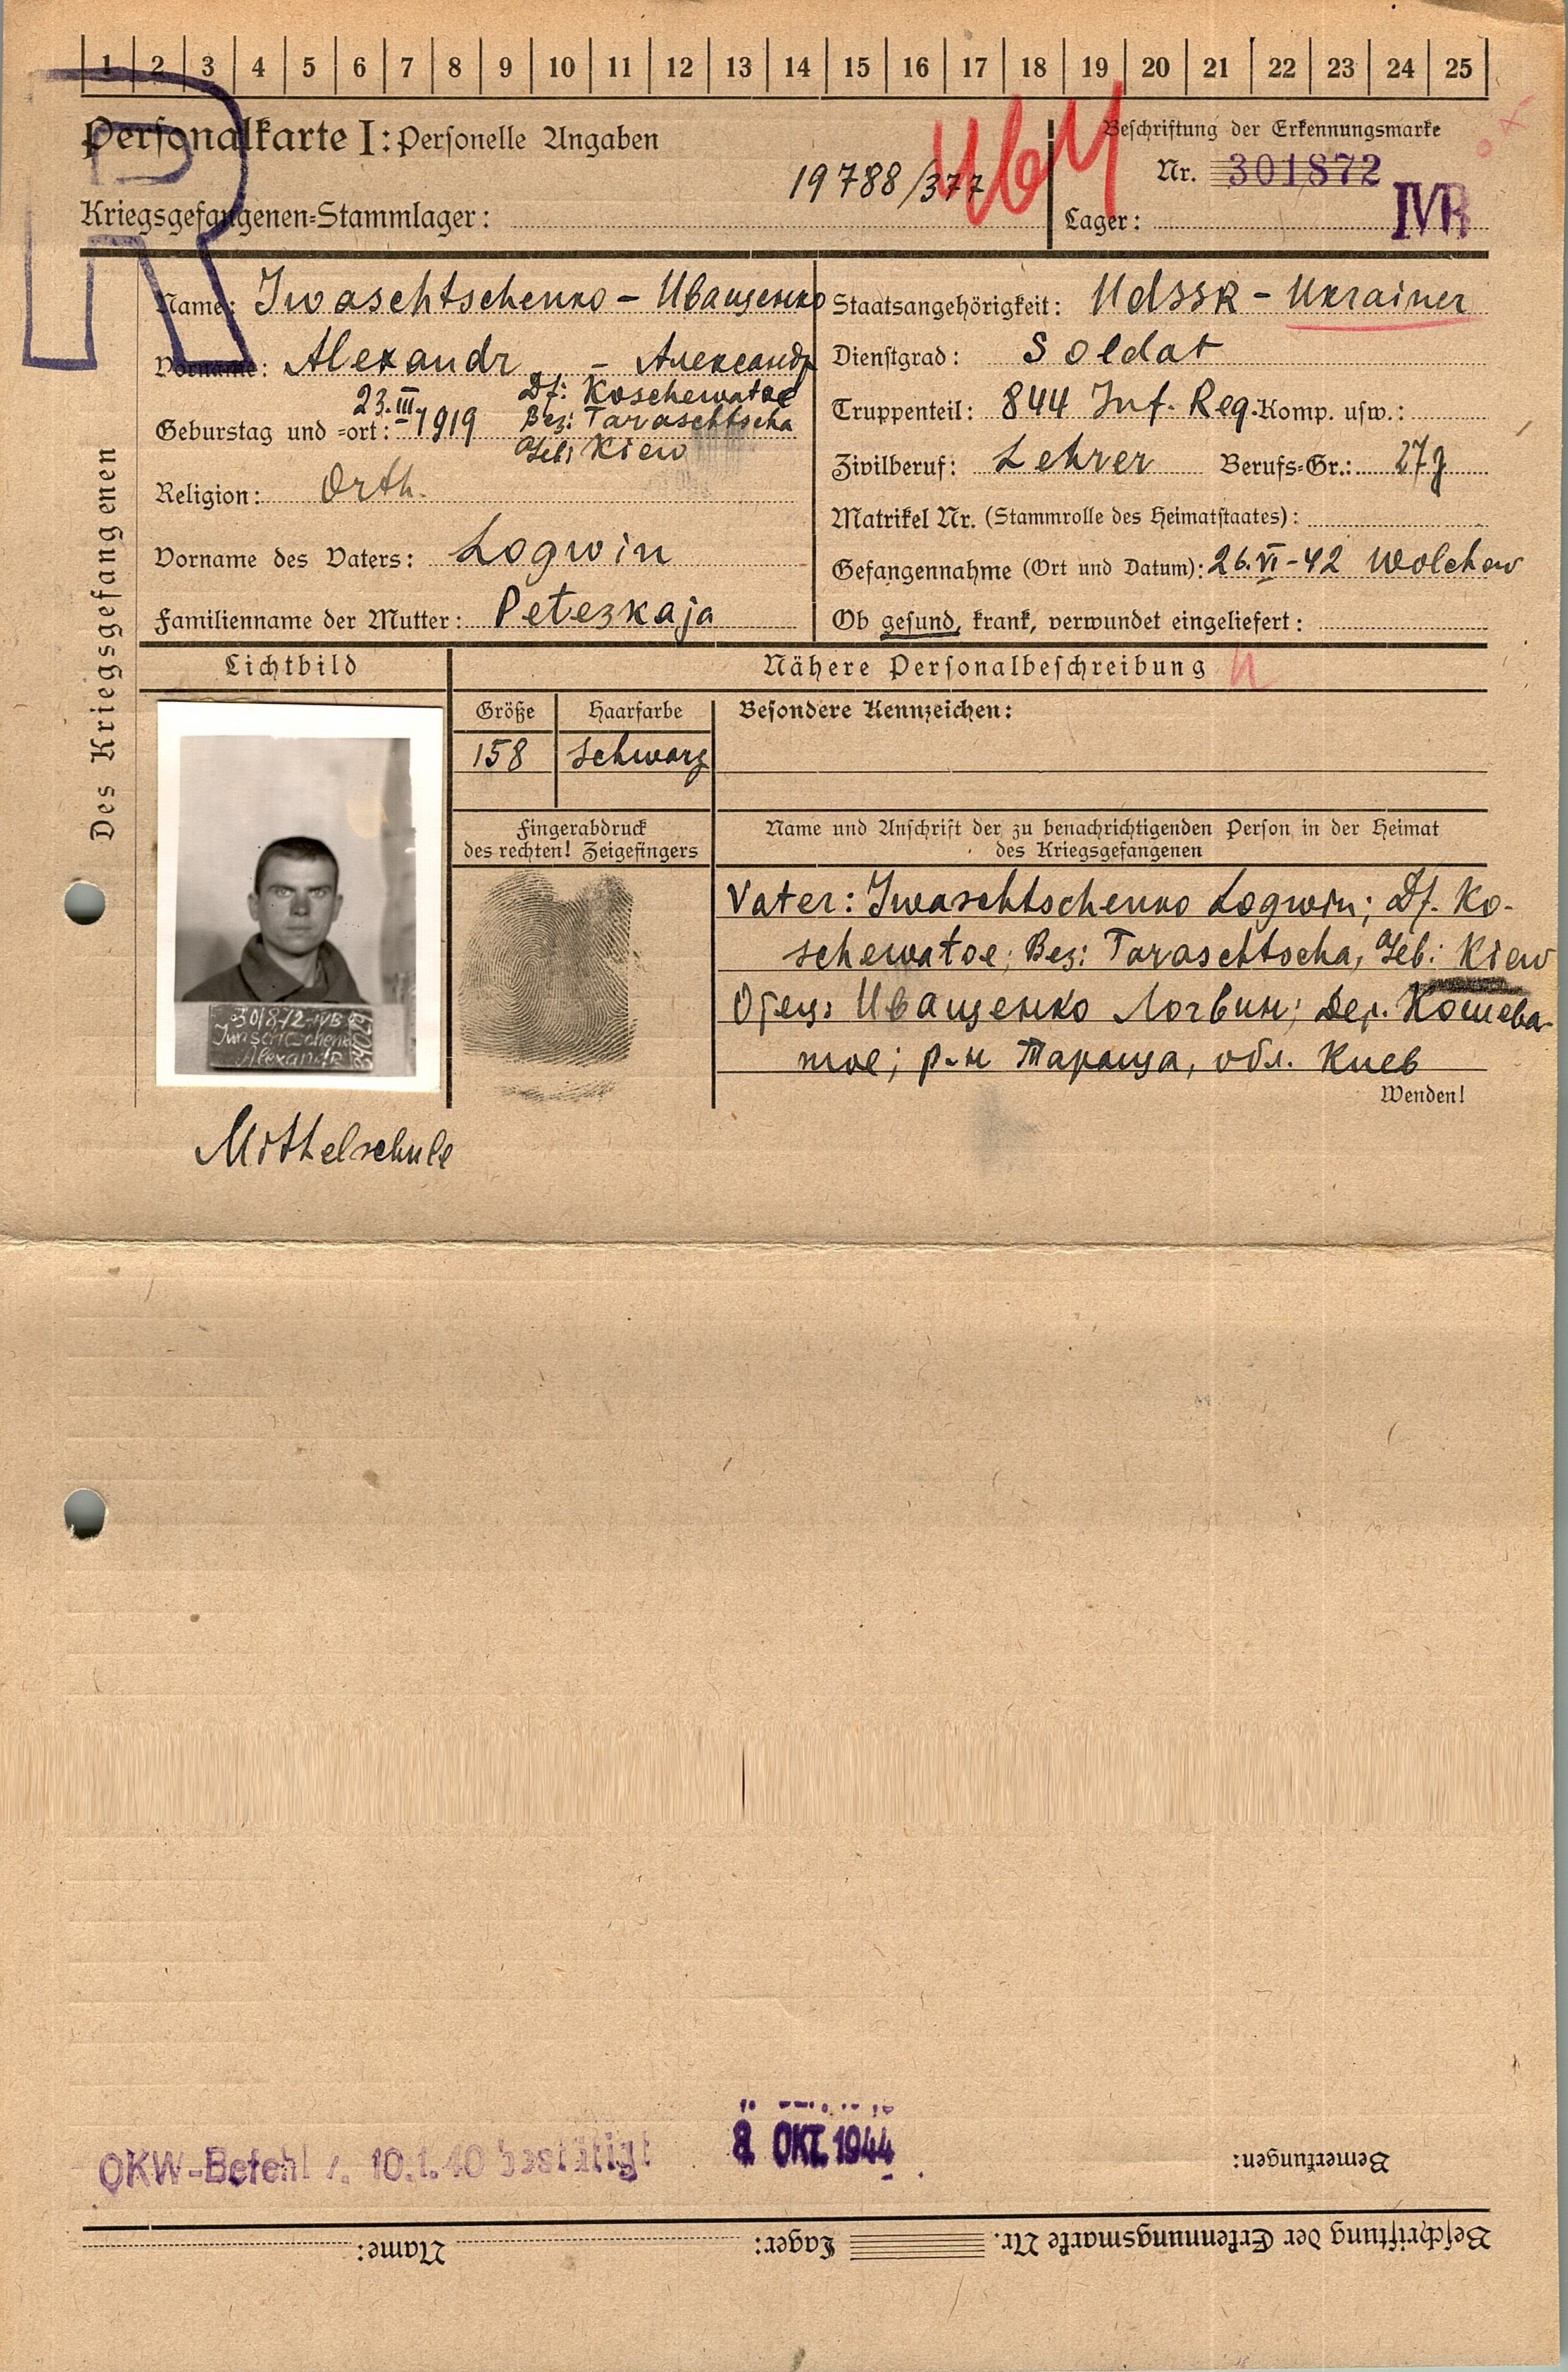 1 2 3 4 5 6 7 8 9 10 11 12 13 14 15 16 17 18 19 20 21 22 23 24 25
R
Personalkarte I: Personelle Angaben
Beschriftung der Erkennungsmarke
19788/377
Nr. 301872
Kriegsgefangenen=Stammlager:
Lager: IVB
Des Kriegsgefangenen
Name: Iwaschtschenko - Иващенко
Vorname: Alexandr - Александр
Geburtstag und =ort: 23.III.-1919 Df: Koschewatoe
Bez: Taraschtscha
Geb: Kiew
Religion: Orth.
Vorname des Vaters: Logwin
Familienname der Mutter: Petezkaja
Staatsangehörigkeit: UdSSR - Ukrainer
Dienstgrad: Soldat
Truppenteil: 844 Inf. Reg. Komp. usw.:
Zivilberuf: Lehrer Berufs=Gr.: 27g
Matrikel Nr. (Stammrolle des Heimatstaates):
Gefangennahme (Ort und Datum): 26.VI-42 Wolchow
Ob gesund, krank, verwundet eingeliefert:
Lichtbild
Nähere Personalbeschreibung
Größe
158
Haarfarbe
schwarz
Besondere Kennzeichen:
Fingerabdruck
des rechten! Zeigefingers
Name und Anschrift der zu benachrichtigenden Person in der Heimat
des Kriegsgefangenen
Vater: Iwaschtschenko Logwin; Df. Ko-
schewatoe; Bez: Taraschtscha, Geb: Kiew
Отец: Иващенко Логвин; Дер. Кошева-
тое; р-н Тараща, обл. Киев
Wenden!
301872 IVB
Iwaschtschenko
Alexandr
Mittelschule
OKW-Befehl v. 10.1.40 bestätigt
8. OKT. 1944
Bemerkungen:
Beschriftung der Erkennungsmarke Nr. Lager: Name: